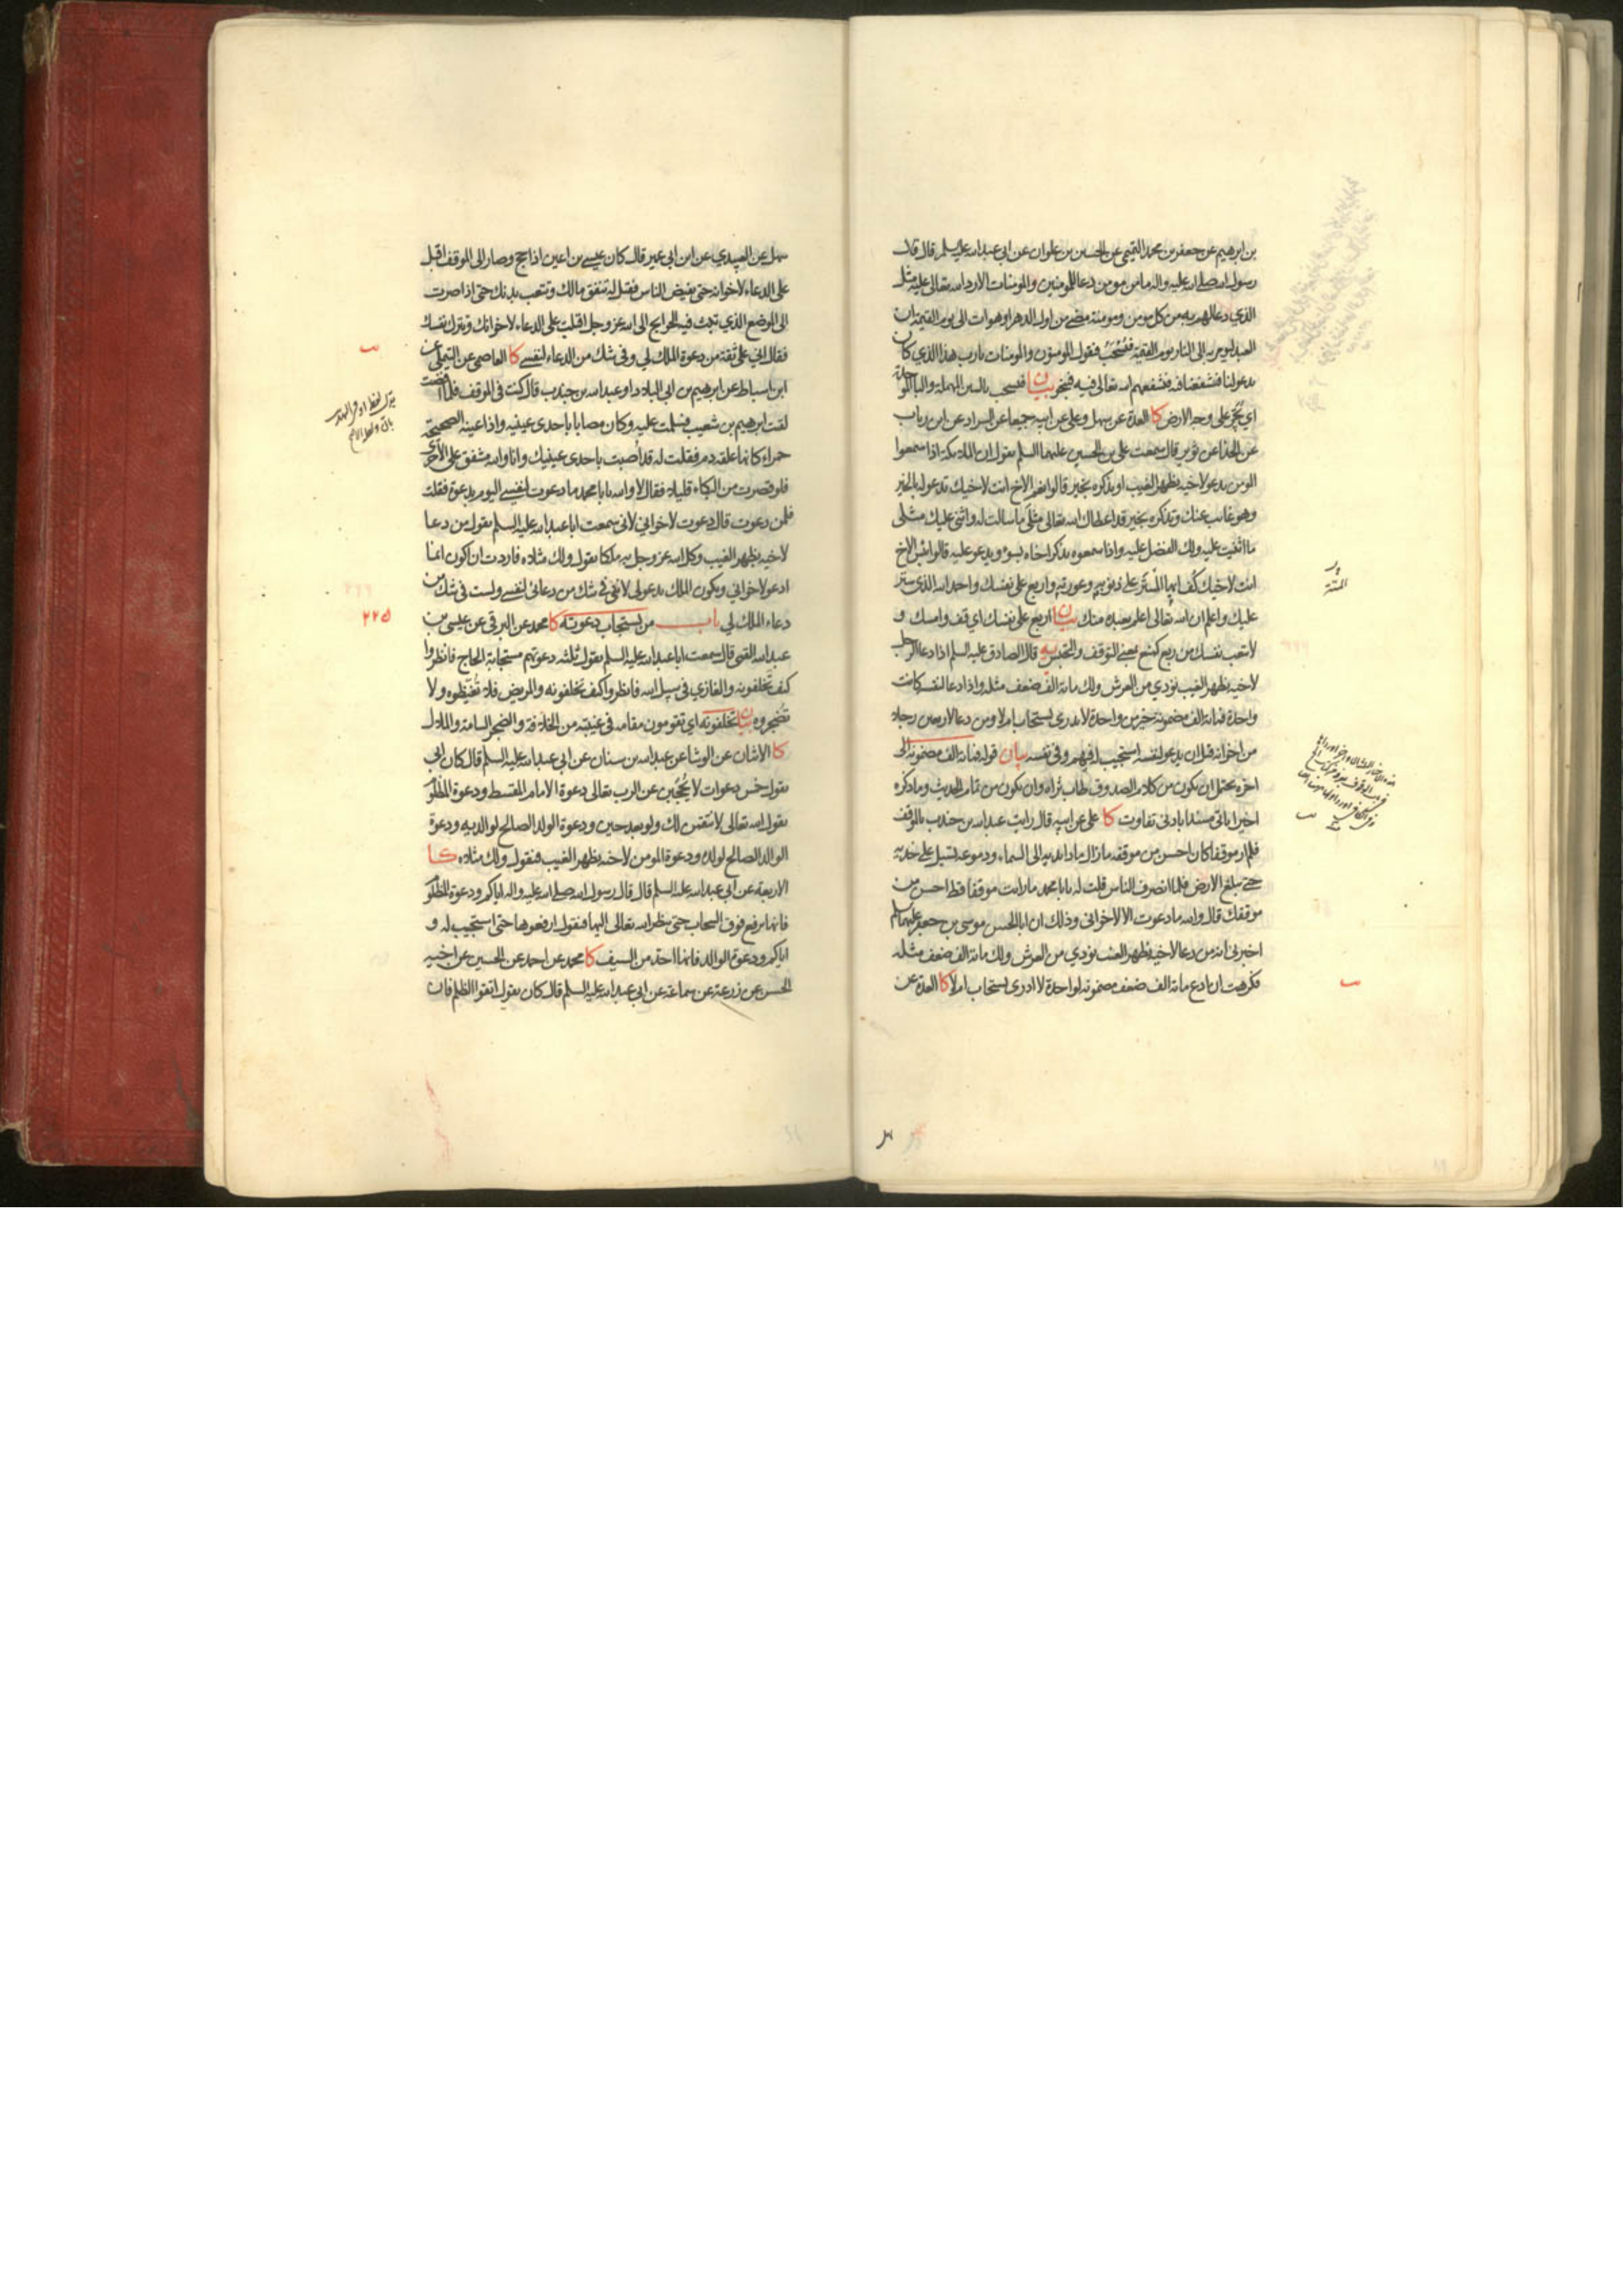 بن ابرهيم عن جعفر بن محمد التميمى عن الحسين بن علوان عن ابى عبد الله عليه السلم قال قال
رسول الله صلى الله عليه واله ما من مومن دعا للمومنين والمومنات الا رد الله تعالى عليه مثل
الذي دعا لهم به من كل مومن ومومنة مضى من اول الدهر او هو ات الى يوم القيمة ان
العبد ليومر به الى النار يوم القيمة فيُسْحَبُ فيقول المومنون والمومنات يا رب هذا الذي كان
يدعو لنا فشفعنا فيه فيشفعهم الله تعالى فيه فينجو بيان فيسحب بالسين المهملة والباء الموحدة
اي يُجَرّ على وجه الارض كا العدة عن سهل وعلى عن ابيه جميعا عن السراد عن ابن رياب
عن الحذاء عن ثوير قال سمعت علي بن الحسين عليهما السلم يقول ان الملائكة اذا سمعوا
المومن يدعو لاخيه بظهر الغيب او يذكره بخير قالوا نعم الاخ انت لاخيك تدعو له بالخير
وهو غائب عنك وتذكره بخير قد اعطاك الله تعالى مثلَى ما سالت له واثنى عليك مثلى
ما اثنيت عليه ولك الفضل عليه واذا سمعوه يذكر اخاه بسوء ويدعو عليه قالوا بئس الاخ
انت لاخيك كُف ايها المُسَتَّر على ذنوبه وعورته واربع على نفسك واحمد الله الذي ستر
عليك واعلم ان الله تعالى اعلم بعبده منك بيان اربع على نفسك اي قف وامسك و
لا تتعب نفسك من ربع كمنع بمعنى التوقف والتحبس يه قال الصادق عليه السلم اذا دعا الرجل
لاخيه بظهر الغيب نودي من العرش ولك مائة الف ضعف مثله واذا دعا لنفسه كانت
واحدة فمائة الف مضمونة خير من واحدة لا يدرى يستجاب ام لا ومن دعا لاربعين رجلا
من اخوانه قبل ان يدعو لنفسه استجيب له فيهم وفى نفسه بيان قوله فمائة الف مضمونة الى
اخره يحتمل ان يكون من كلام الصدوق طاب ثراه وان يكون من تمام الحديث وما ذكره
اخيرا ياتى مسندا بادنى تفاوت كا على عن ابيه قال رايت عبد الله بن جندب بالموقف
فلم ار موقفا كان احسن من موقفه ما زال مادا يديه الى السماء ودموعه تسيل على خديه
حتى تبلغ الارض فلما انصرف الناس قلت له يا با محمد ما رايت موقفا قط احسن من
موقفك قال والله ما دعوت الا لاخوانى وذلك ان ابا الحسن موسى بن جعفر عليهما السلم
اخبرنى انه من دعا لاخيه بظهر الغيب نودي من العرش ولك مائة الف ضعف مثله
فكرهت ان ادع مائة الف ضعف مضمونة لواحدة لا ادرى تستجاب ام لا كا العدة عن
سهل عن العبيدي عن ابن ابى عمير قال كان عيسى بن اعين اذا حج وصار الى الموقف اقبل
على الدعاء لاخوانه حتى يفيض الناس فقيل له تنفق مالك وتتعب بدنك حتى اذا صرت
الى الموضع الذي تبث فيه الحوايج الى الله عز وجل اقبلت على الدعاء لاخوانك وتترك نفسك
فقال انى على ثقة من دعوة الملك لي وفى شك من الدعاء لنفسى كا العاصمى عن التيملى عن
ابن اسباط عن ابرهيم بن ابى البلاد او عبد الله بن جندب قال كنت فى الموقف فلما افضت
لقيت ابرهيم بن شعيب فسلمت عليه وكان مصابا باحدى عينيه واذا عينه الصحيحة
حمراء كانها علقة دم فقلت له قد اُصبت باحدى عينيك وانا والله مشفق على الاخرى
فلو قصرت من البكاء قليلا فقال لا والله يا با محمد ما دعوت لنفسى اليوم بدعوة فقلت
فلمن دعوت قال دعوت لاخوانى لانى سمعت ابا عبد الله عليه السلم يقول من دعا
لاخيه بظهر الغيب وكل الله عز وجل به ملكا يقول ولك مثلاه فاردت ان اكون انما
ادعو لاخوانى ويكون الملك يدعو لى لانى فى شك من دعائى لنفسى ولست فى شك من
دعاء الملك لي باب من تستجاب دعوته كا محمد عن البرقى عن عيسى بن
عبد الله القمى قال سمعت ابا عبد الله عليه السلم يقول ثلثة دعوتهم مستجابة الحاج فانظروا
كيف تخلفونه والغازي فى سبيل الله فانظروا كيف تخلفونه والمريض فلا تُغيظوه ولا
تُضجروه بيان تخلفونه اي تقومون مقامه فى غيبته من الخلافة والضجر السامة والملال
كا الاثنان عن الوشا عن عبد الله بن سنان عن ابى عبد الله عليه السلم قال كان ابى
يقول خمس دعوات لا يُحْجَبْن عن الرب تعالى دعوة الامام المقسط ودعوة المظلوم
يقول الله تعالى لانتقمن لك ولو بعد حين ودعوة الولد الصالح لوالديه ودعوة
الوالد الصالح لولده ودعوة المومن لاخيه بظهر الغيب فيقول ولك مثلاه كا
الاربعة عن ابى عبد الله عليه السلم قال قال رسول الله صلى الله عليه واله اياكم ودعوة المظلوم
فانها ترفع فوق السحاب حتى ينظر الله تعالى اليها فيقول ارفعوها حتى استجيب له و
اياكم ودعوة الوالد فانها احد من السيف كا محمد عن احمد عن الحسين عن اخيه
الحسن عن زرعة عن سماعة عن ابى عبد الله عليه السلم قال كان يقول اتقوا الظلم فان
٢٢٥